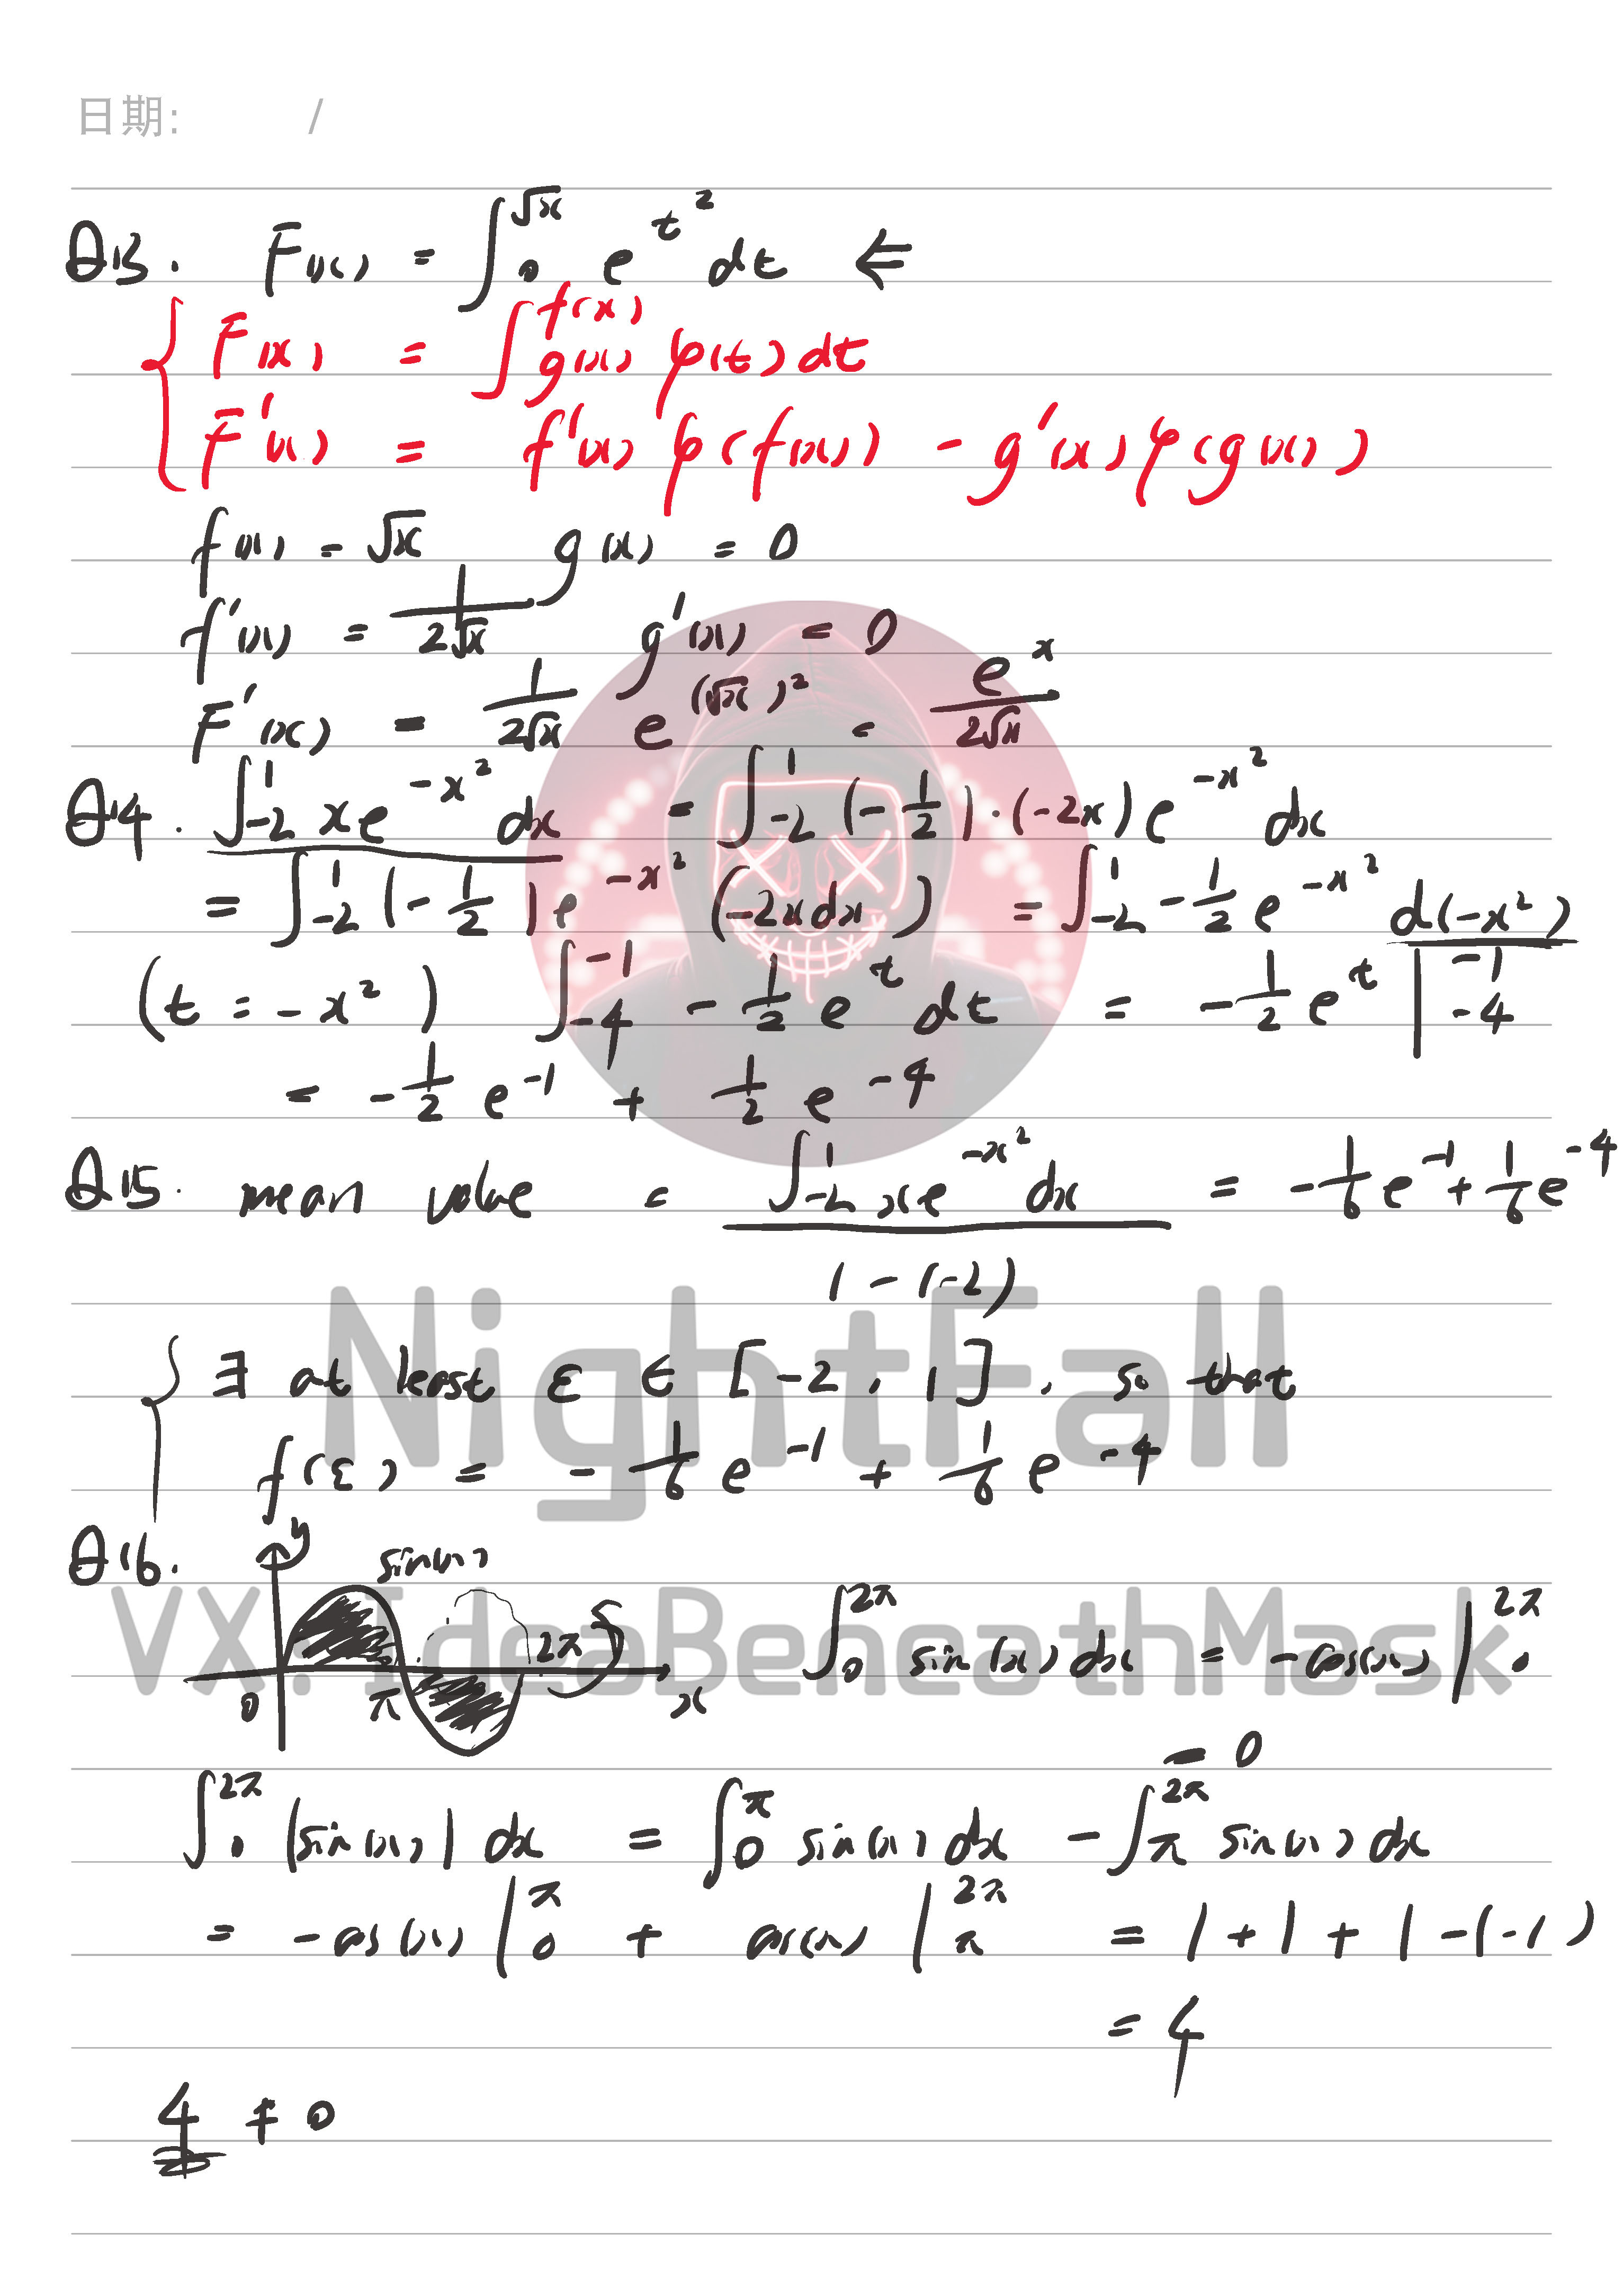 日期: /
Q13. F(x) = ∫₀^√x e^(t²) dt ⇐
F(x) = ∫_g(x)^f(x) φ(t) dt
F'(x) = f'(x) φ(f(x)) - g'(x) φ(g(x))
f(x) = √x g(x) = 0
f'(x) = 1/(2√x) g'(x) = 0
F'(x) = 1/(2√x) e^(√x)² = e^x/(2√x)
Q14. ∫_-2^1 x e^(-x²) dx = ∫_-2^1 (-1/2)·(-2x) e^(-x²) dx
= ∫_-2^1 (-1/2) e^(-x²) (-2x dx) = ∫_-2^1 -1/2 e^(-x²) d(-x²)
(t = -x²) ∫_-4^-1 -1/2 e^t dt = -1/2 e^t |_-4^-1
= -1/2 e^-1 + 1/2 e^-4
Q15. mean value = ∫_-2^1 x e^(-x²) dx / (1-(-2)) = -1/6 e^-1 + 1/6 e^-4
NightFall
∃ at least ε ∈ [-2, 1], so that
f(ε) = -1/6 e^-1 + 1/6 e^-4
Q16. y sin(x) 0 π 2π x ∫_0^2π sin(x) dx = -cos(x) |_0^2π
VX: IdeaBeneathMask
= 0
∫_0^2π |sin(x)| dx = ∫_0^π sin(x) dx - ∫_π^2π sin(x) dx
= -cos(x) |_0^π + cos(x) |_π^2π = 1+1+1-(-1)
= 4
4 ≠ 0